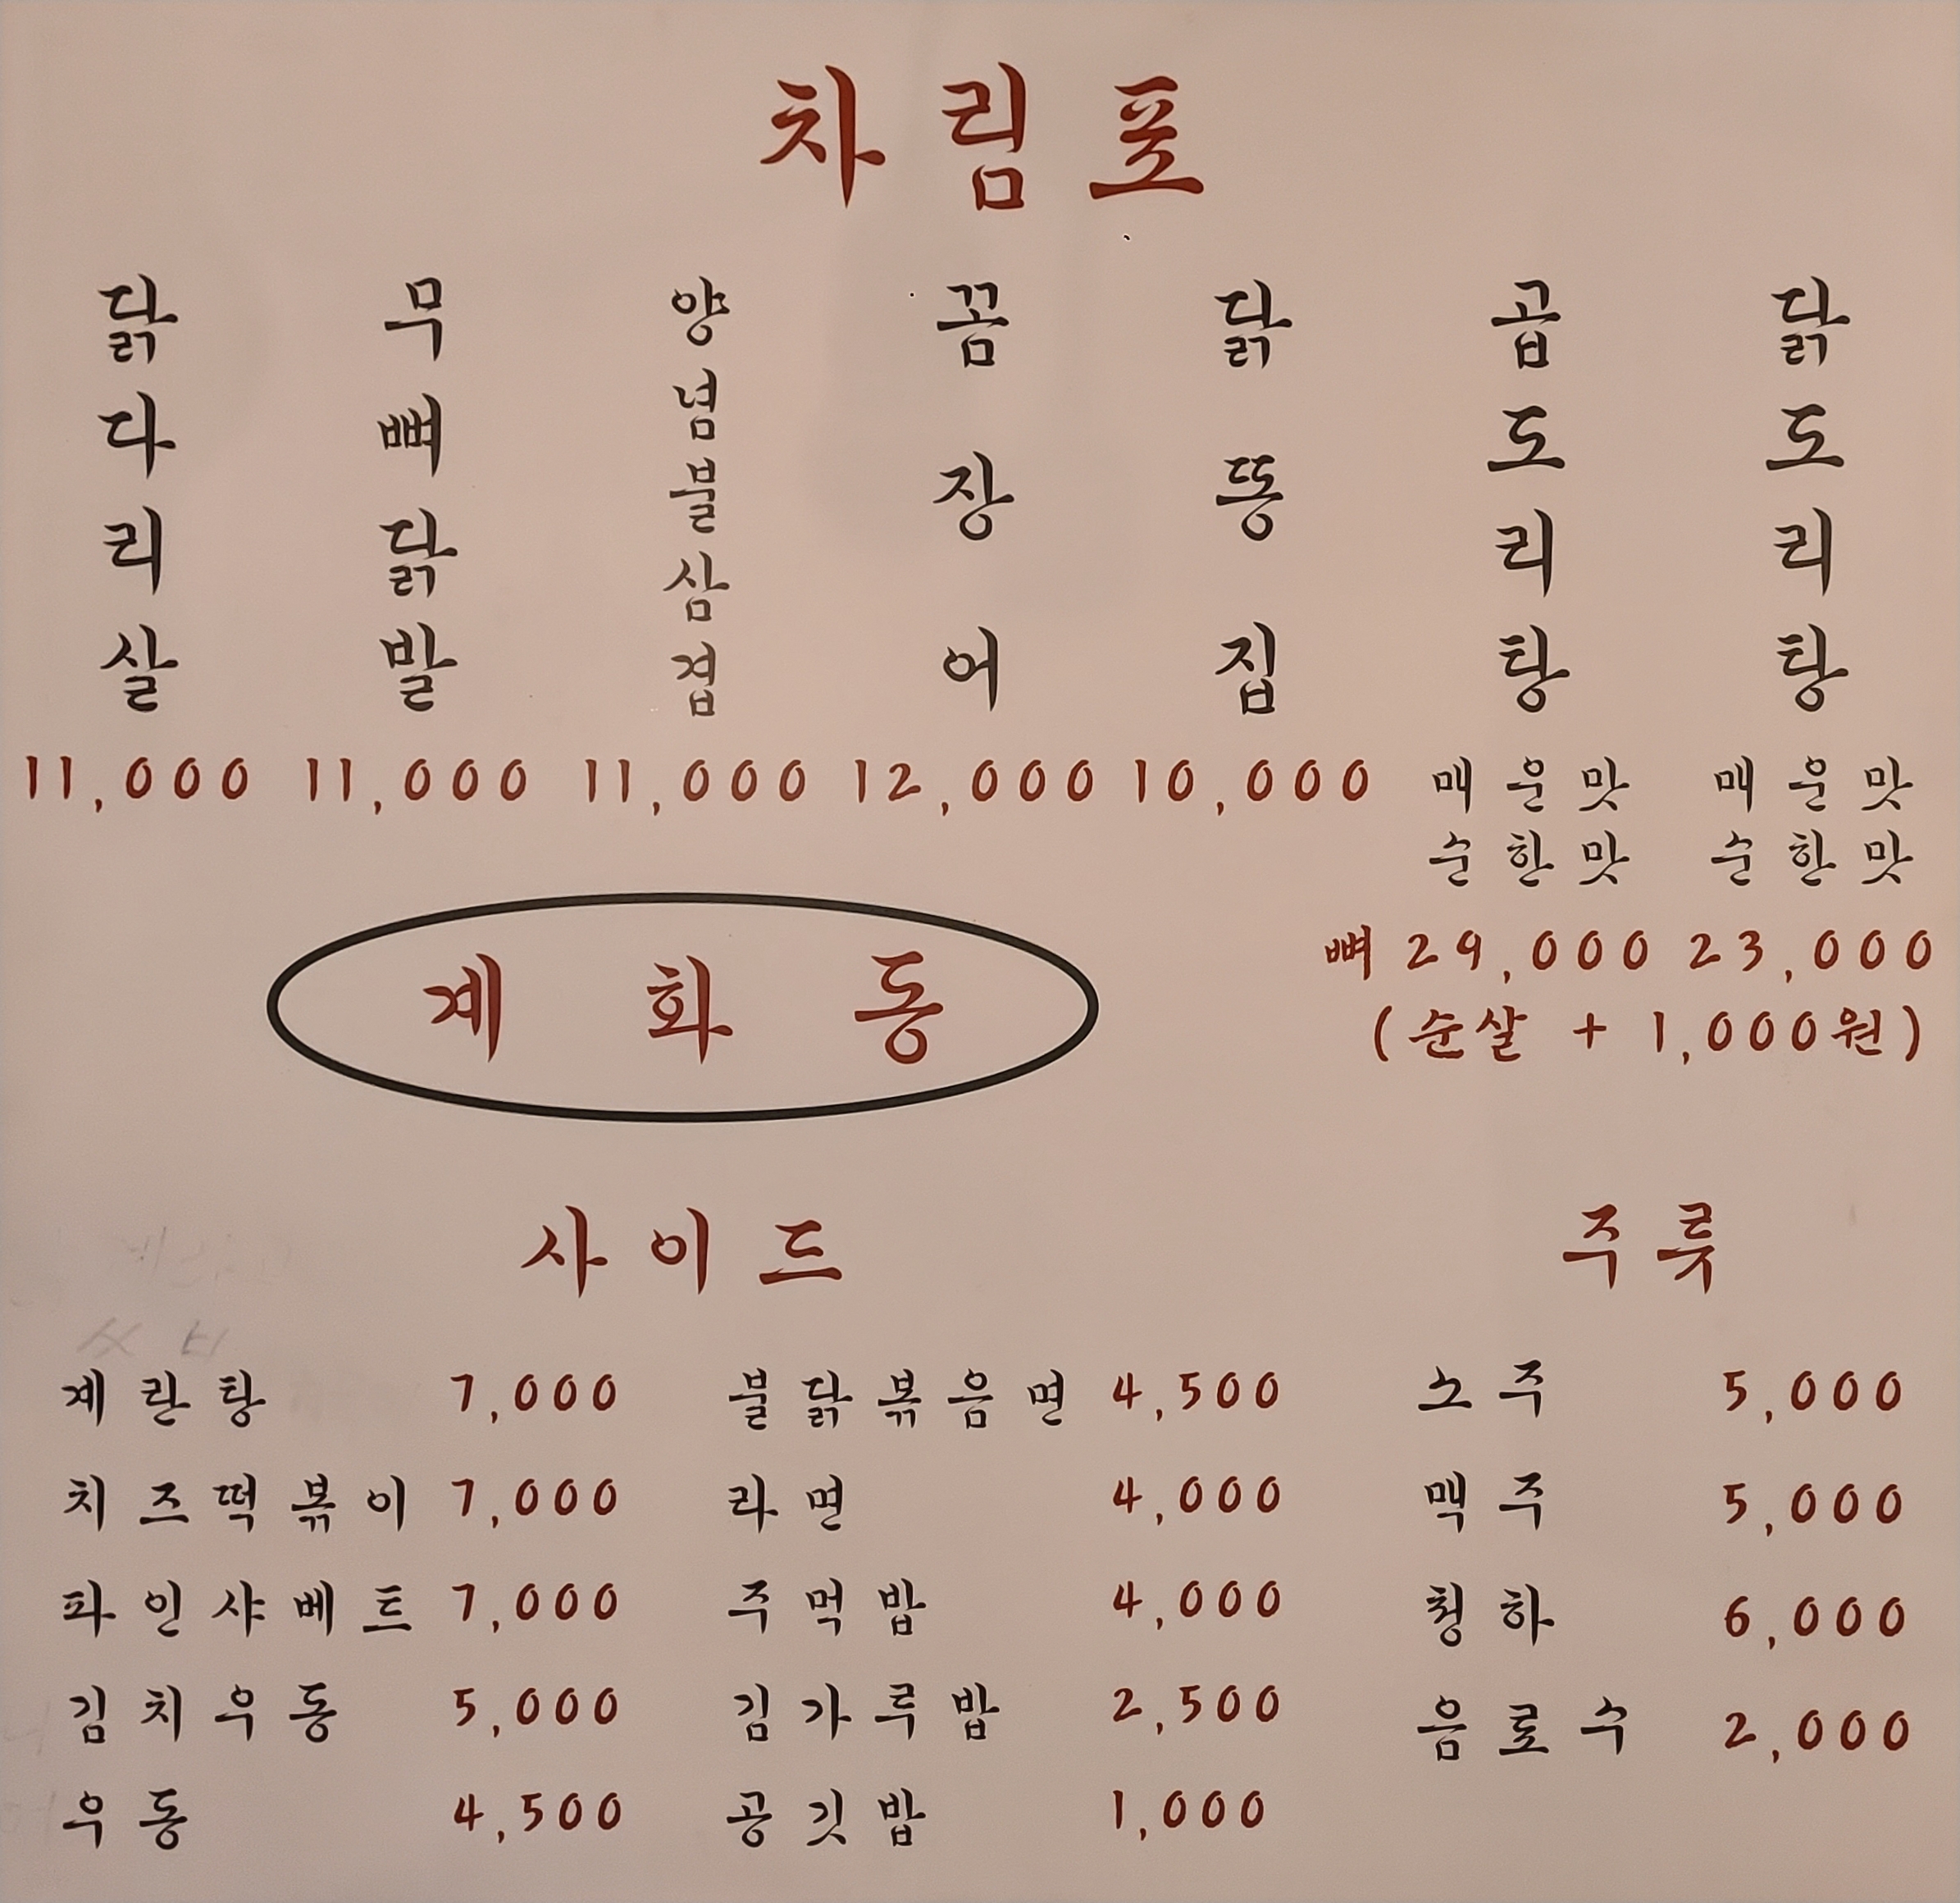 차림포
닭다리살
무뼈닭발
양념불삼겹
꼼장어
닭똥집
곱도리탕
닭도리탕
11,000 11,000 11,000 12,000 10,000
매운맛 매운맛
순한맛 순한맛
뼈 29,000 23,000
(순살 + 1,000원)
계화동
사이드
계란탕 7,000 불닭볶음면 4,500
치즈떡볶이 7,000 라면 4,000
파인샤베트 7,000 주먹밥 4,000
김치우동 5,000 김가루밥 2,500
우동 4,500 공깃밥 1,000
주룻
소주 5,000
맥주 5,000
청하 6,000
음로수 2,000